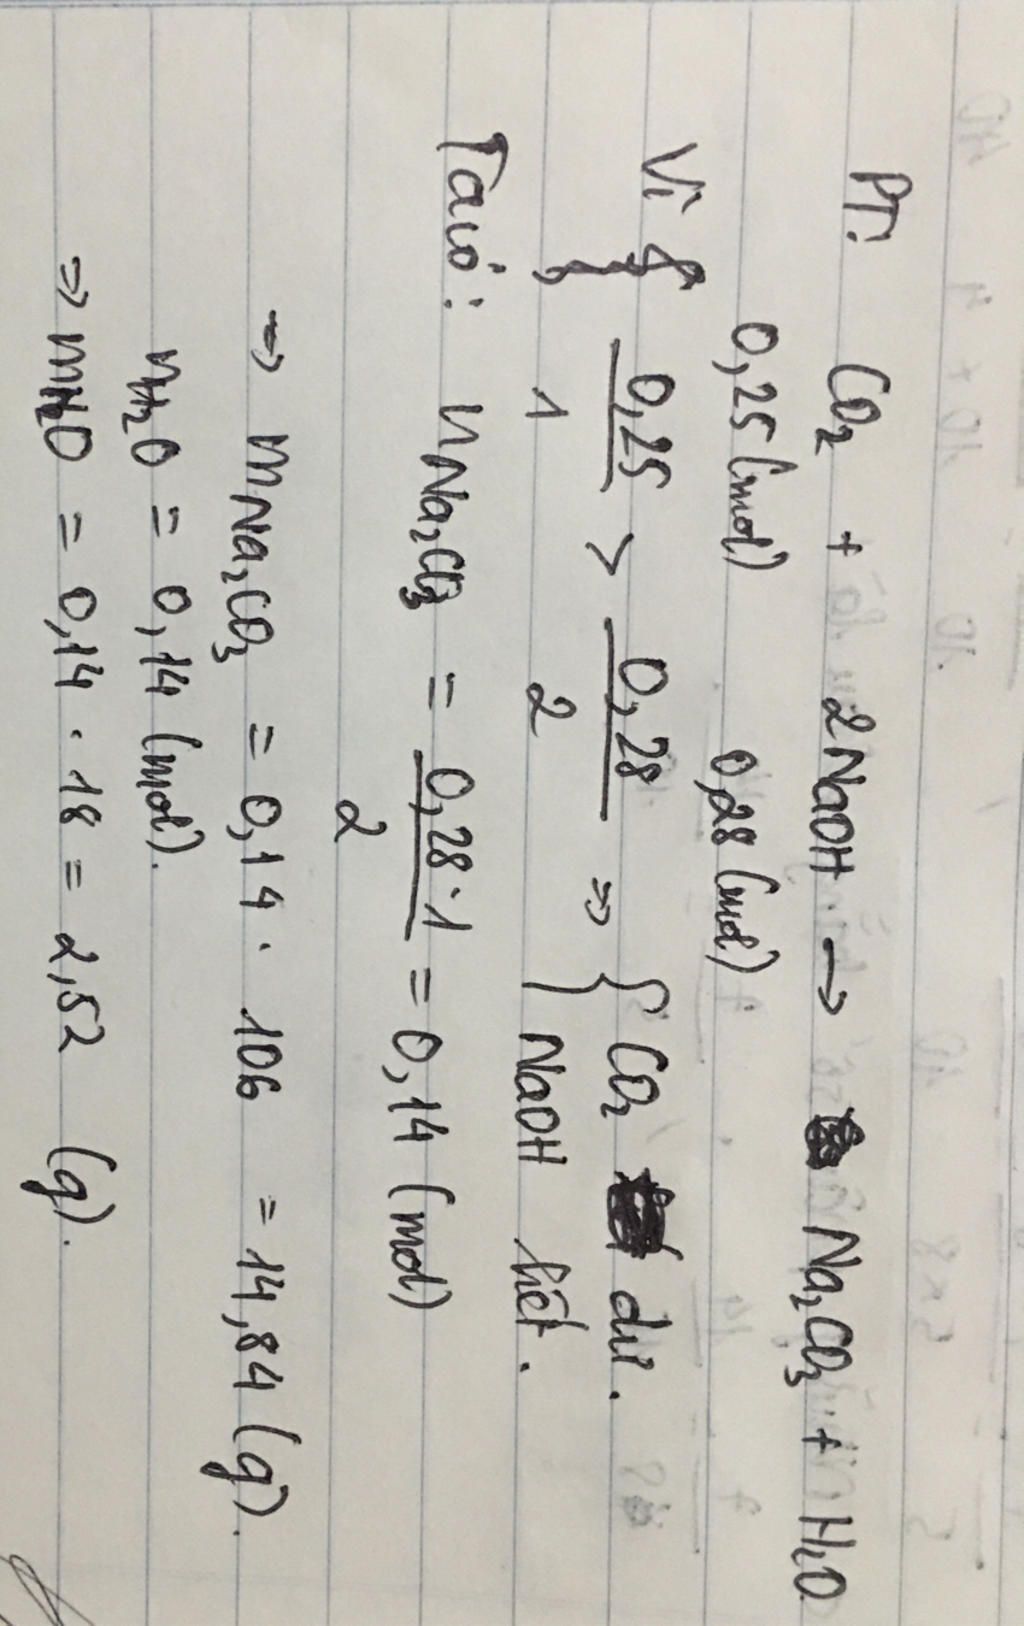 PT: CO₂ + 2NaOH → Na₂CO₃ + H₂O
0,25 (mol) 0,28 (mol)
Vì 0,25/1 > 0,28/2 => { CO₂ dư.
NaOH hết.
Ta có: nNa₂CO₃ = 0,28·1/2 = 0,14 (mol)
=> mNa₂CO₃ = 0,14 · 106 = 14,84 (g).
nH₂O = 0,14 (mol).
=> mH₂O = 0,14 · 18 = 2,52 (g).